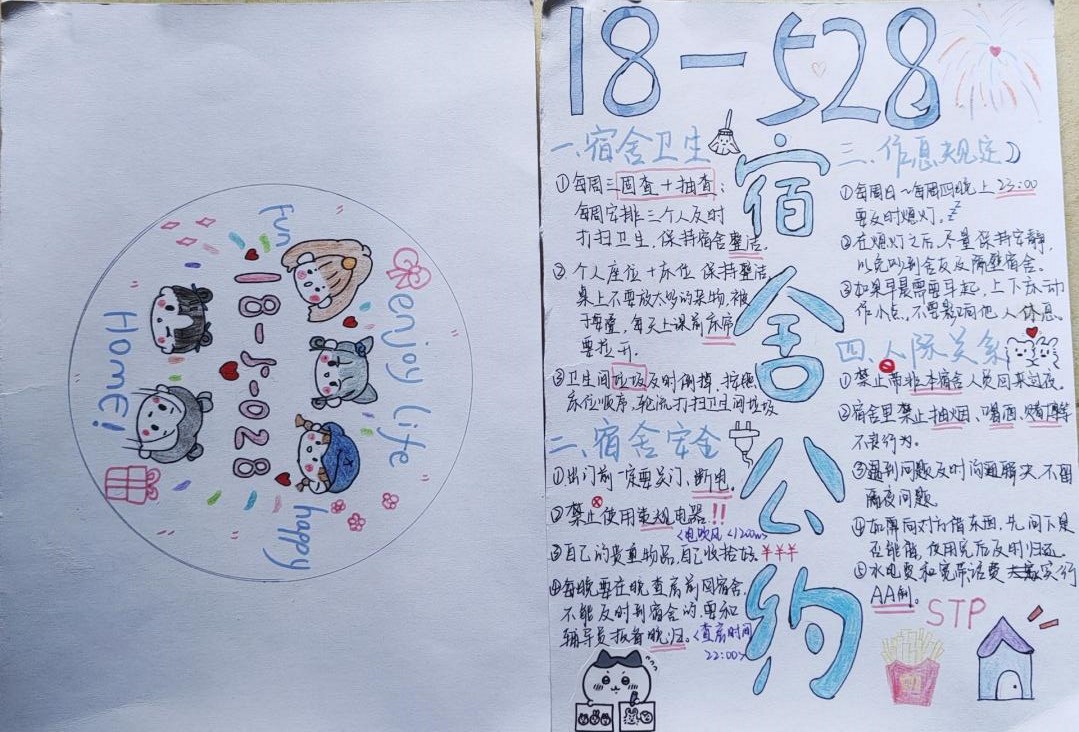 Fun
enjoy life
18-5-028
HomE!
happy
18-528
宿舍公约
一、宿舍卫生
①每周三周查+抽查:
每周安排三个人及时
打扫卫生,保持宿舍整洁。
②个人座位+床位保持整洁
桌上不要放太多的杂物,被
子要叠,每天上课前床帘
要拉开。
③卫生间垃圾及时倒掉,按照
床位顺序,轮流打扫卫生间垃圾
二、宿舍安全
①出门前一定要关门、断电。
②禁止使用违规电器!!
<电吹风<1200w>
③自己的贵重物品,自己收拾好。¥¥¥
④每晚要在晚查房前回宿舍,
不能及时到宿舍的要和
辅导员报备晚归。<查房时间
22:00>
三、作息规定
①每周日~每周四晚上23:00
要及时熄灯。zz
②在熄灯之后,尽量保持安静,
以免吵到舍友及隔壁宿舍。
③如果早晨需要早起,上下床动
作小点,不要影响他人休息。
四、人际关系
①禁止带非本宿舍人员回来过夜。
②宿舍里禁止抽烟、喝酒、赌博等
不良行为。
③遇到问题及时沟通解决,不留
隔夜问题
④如需向对方借东西,先问下是
否能借,使用完后及时归还。
⑤水电费和宽带话费实行
AA制。
STP